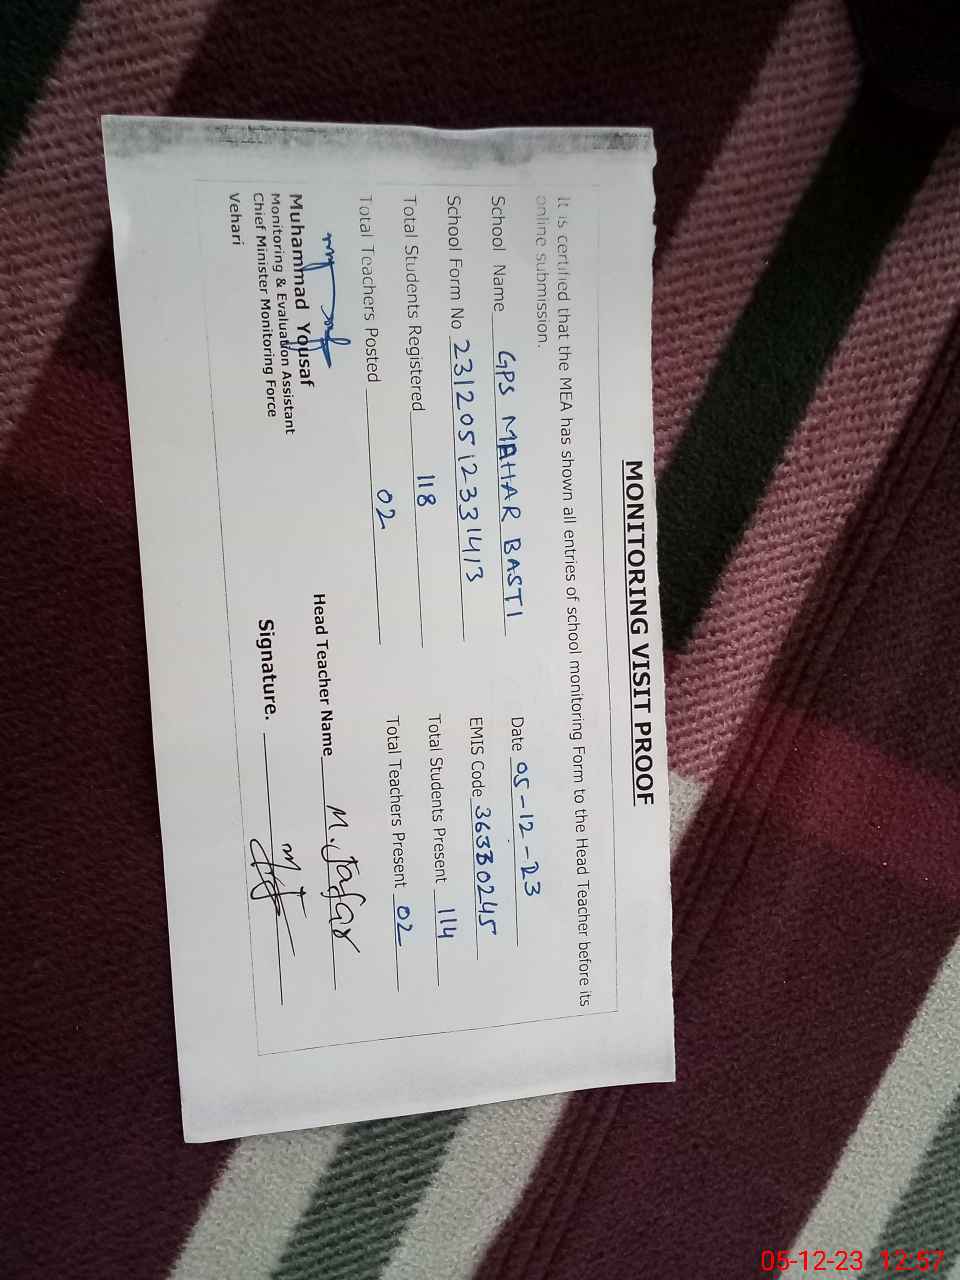 MONITORING VISIT PROOF
It is certified that the MEA has shown all entries of school monitoring Form to the Head Teacher before its
online submission.
School Name GPS MAHAR BASTI Date 05-12-23
School Form No 23120512331413 EMIS Code 36330245
Total Students Registered 118 Total Students Present 114
Total Teachers Posted 02 Total Teachers Present 02
Head Teacher Name M. Jafar
Muhammad Yousaf
Monitoring & Evaluation Assistant
Chief Minister Monitoring Force
Vehari
Signature.
05-12-23 12:57